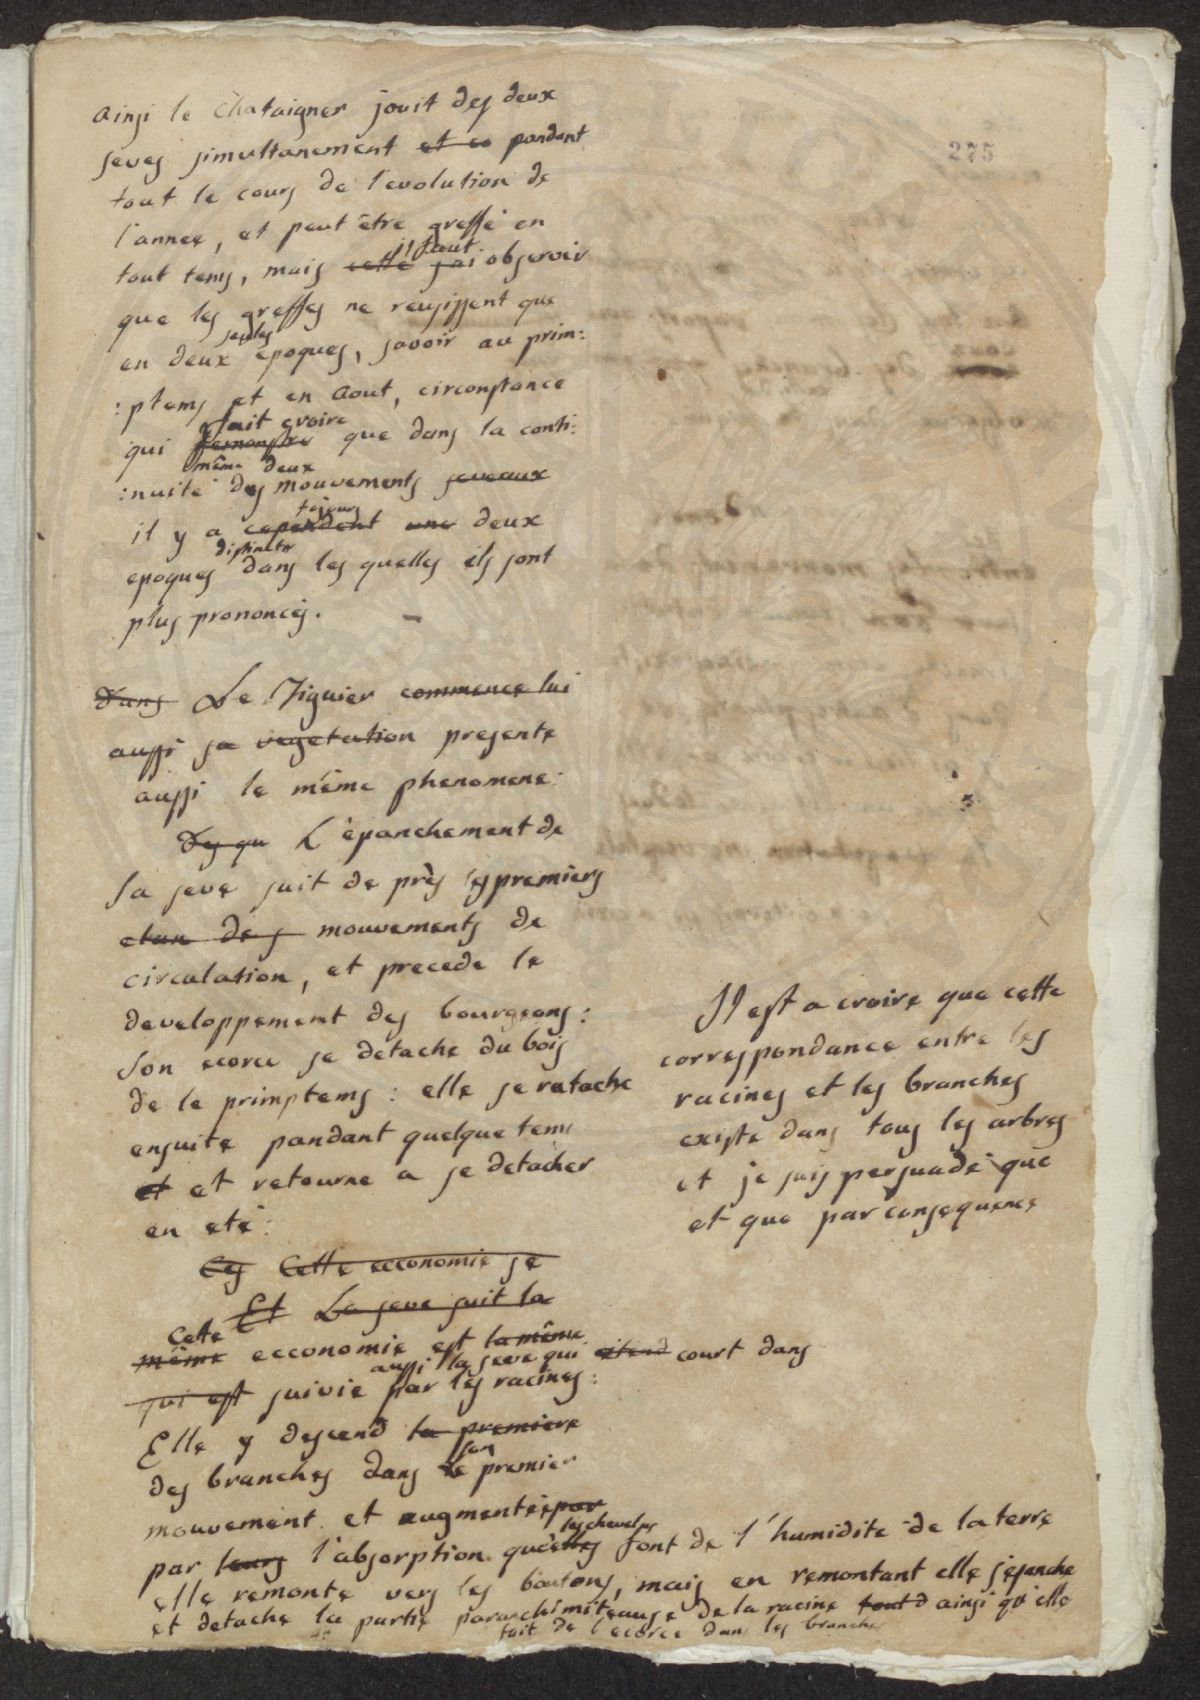 275
ainsi le chataigner jouit des deux
seves simultanement et ce pandant
tout le cours de l'evolution de
l'annee, et peut être greffé en
il faut
tout tems, mais cette j'ai observer
que les greffes ne reusissent que
seules
en deux epoques, savoir au prim:
:ptems et en Aout, circonstance
fait croire
qui demonstre que dans la conti:
même deux
:nuité des mouvements seveaux
tojours
il y a cependent une deux
distinctes
epoques dans les quelles ils sont
plus prononcés.
Dans Le Figuier commence lui
aussi sa vegetation presente
aussi le même phenomene:
Des qu L'épanchement de
sa seve suit de près les premiers
elan des mouvements de
circulation, et precede le
developpement des bourgeons:
Son ecorce se detache du bois
de le primptems: elle se ratache
ensuite pandant quelque tems
et et retourne a se detacher
en eté:
Ces Cette ecconomie se
Et La seve suit la
Cette
même ecconomie est la même
aussi la seve qui etend court dans
qui est suivie par les racines:
Elle y descend la premiere
son
des branches dans le premier
mouvement et augmentée par
les chevelus
par leurs l'absorption qu'elles font de l'humidite de la terre
elle remonte vers les boutons, mais en remontant elle s'epanche
et detache la partie paranchimateause de la racine tout d ainsi qu'elle
fait de l'ecorce dans les branches
Il est a croire que cette
correspondance entre les
racines et les branches
existe dans tous les arbres
et je suis persuadé que
et que par consequence